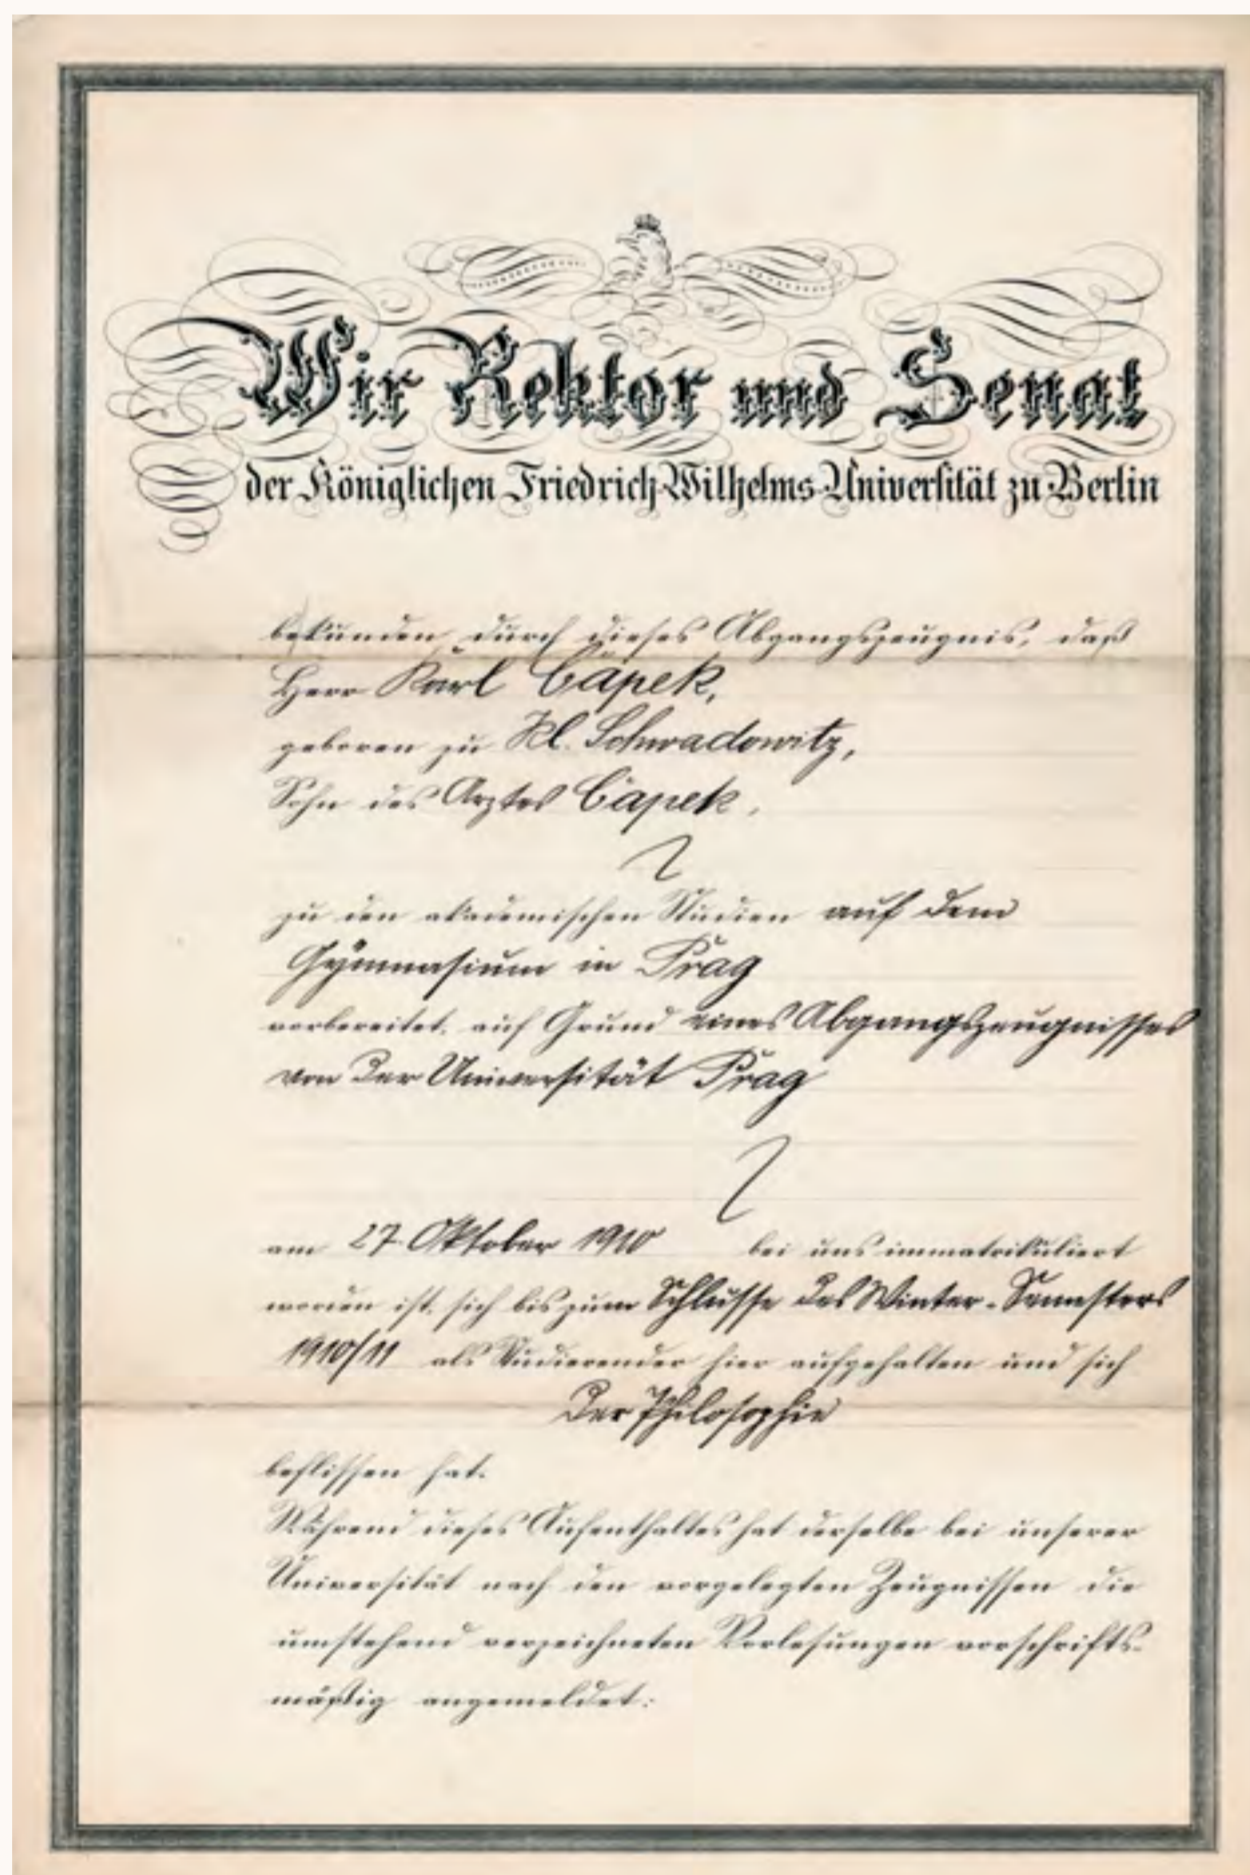 Wir Rektor und Senat
der Königlichen Friedrich-Wilhelms-Universität zu Berlin
bekunden durch dieses Abgangszeugnis, daß
Herr Karl Čapek,
geboren zu Kl. Schwadowitz,
Sohn des Arztes Čapek,
zu den akademischen Studien auf dem
Gymnasium in Prag
vorbereitet, auf Grund eines Abgangszeugnisses
von der Universität Prag
am 27. Oktober 1910 bei uns immatrikuliert
worden ist, sich bis zum Schlusse des Winter-Semesters
1910/11 als Studierender hier aufgehalten und sich
der Philosophie
beflissen hat.
Während dieses Aufenthaltes hat derselbe bei unserer
Universität nach den vorgelegten Zeugnissen die
umstehend verzeichneten Vorlesungen vorschrifts-
mäßig angemeldet: